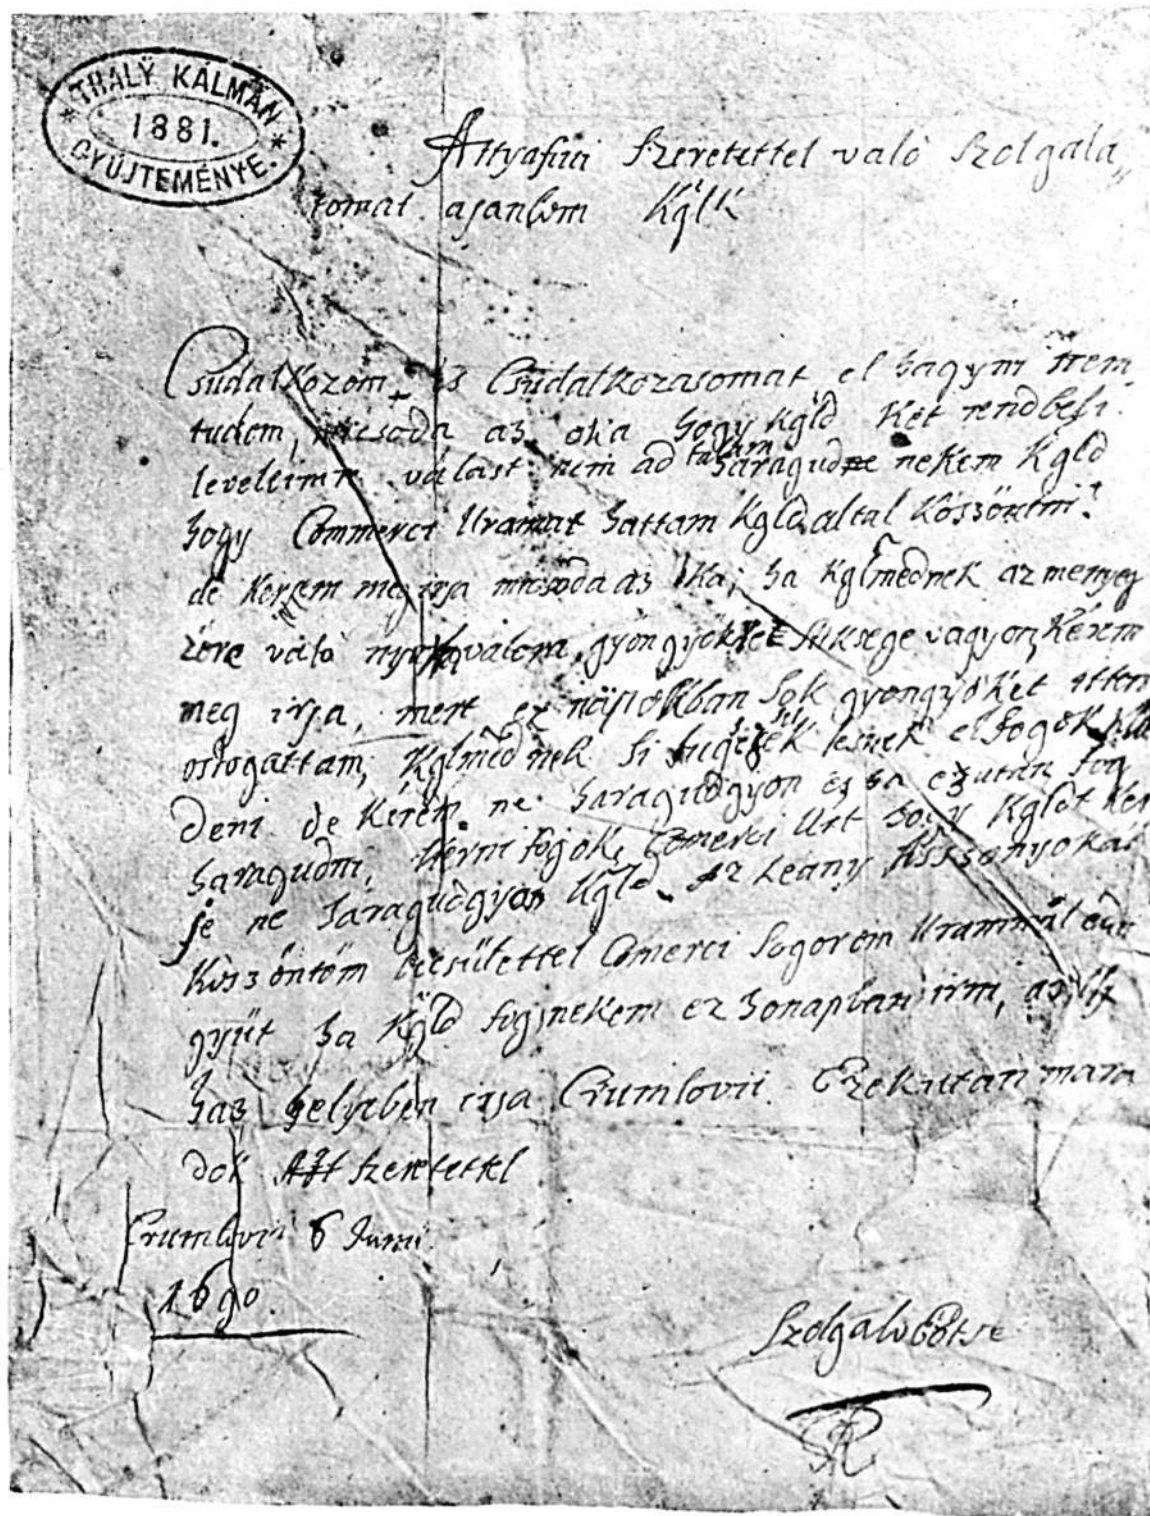 THALY KÁLMÁN
1881.
GYÜJTEMÉNYE.
Attyafiui Szeretettel valo Szolgala„
tomat ajanlom Kglk
Csudalkozom, és Csudalkozasomat el hagyni nem
tudom, micsoda az oka hogy Kgld két rendbeli
leveleimre válast nem ad talám haragudne nekem Kgld
hogy Commerci Uramat hattam Kgld altal köszöntni?
de kerem meg irja micsoda az oka; ha Kglmednek az menyeg
zöre való nyakra valora, gyöngyökre süksege vagyon, kérem
meg irja, mert ez napokban sok gyöngyöket itten
ostogattam, Kglmednek is lesnek el fogok
deni de kérem ne haragudgyon és ha ezutan fog
haragudni, kérni fogok, Comerci Urt hogy Kgldt kér
je ne haragudgyon Kgld. Az Leany Asszonyokat
köszöntöm becsülettel Comerci Sogorom Urammal edgy
gyüt ha Kgld fog nekem ez honapban irni, az
haz helyeben irja Crumlovii. Ezek utan mara
dok Att Szeretettel
Crumlovii 6 Junii
1690.
Szolgalo Ötse